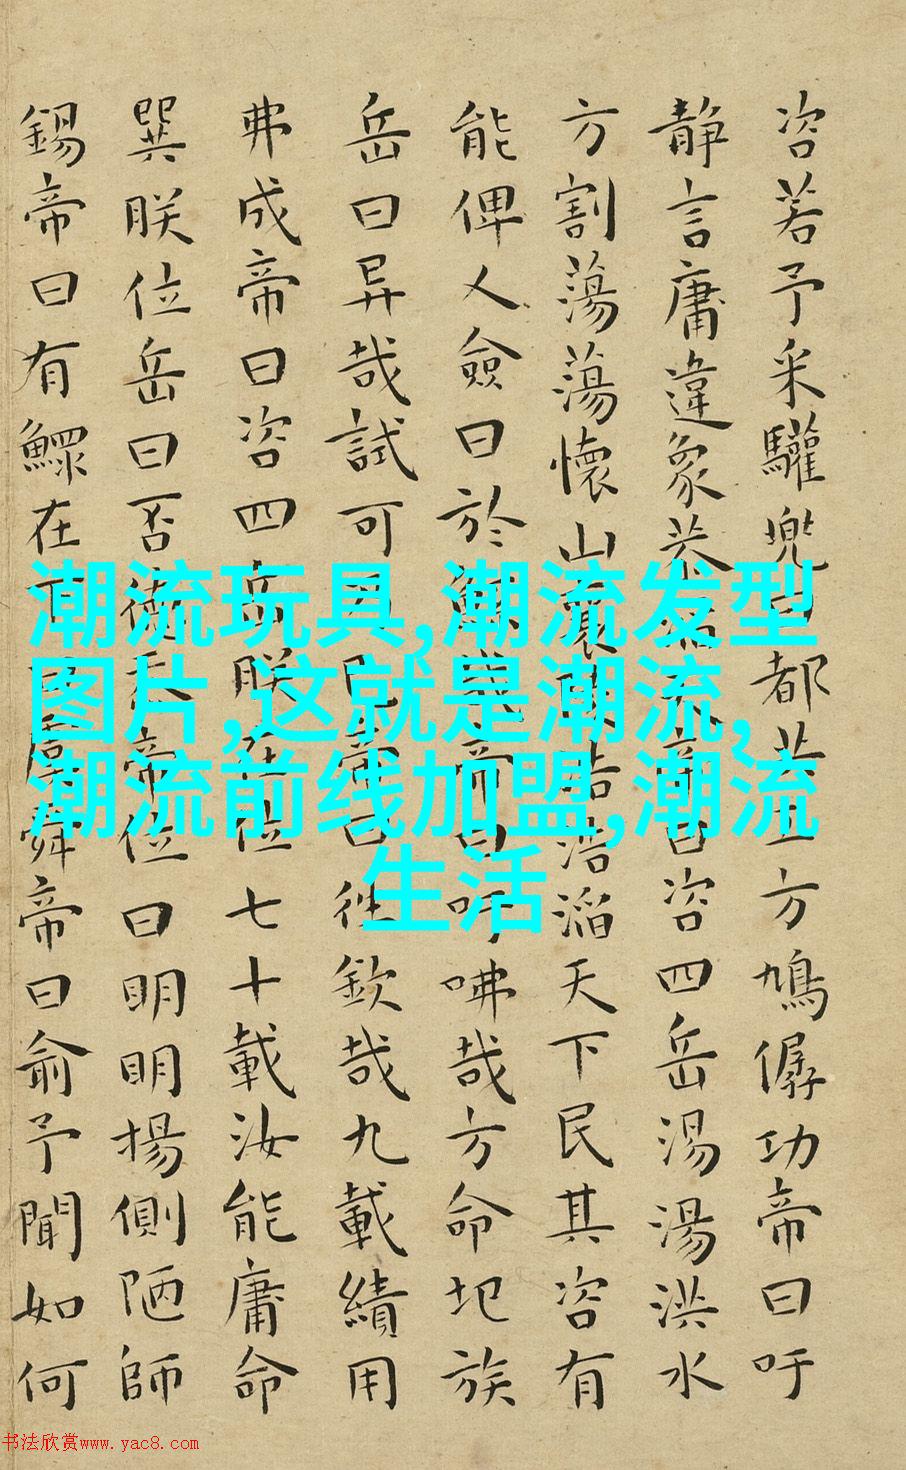 咨若予采驩兜曰都共工方鳩僝功帝曰吁
靜言庸違象恭滔天帝曰咨四岳湯湯洪水
方割蕩蕩懷山襄陵浩浩滔天下民其咨有
能俾乂僉曰於鯀哉帝曰吁咈哉方命圮族
岳曰异哉試可乃已帝曰往欽哉九載績用
弗成帝曰咨四岳朕在位七十載汝能庸命
巽朕位岳曰否德忝帝位曰明明揚側陋師
錫帝曰有鰥在下曰虞舜帝曰俞予聞如何
潮流玩具,潮流发型
图片,这就是潮流,
潮流前线加盟,潮流
生活
书法欣赏www.yac8.com